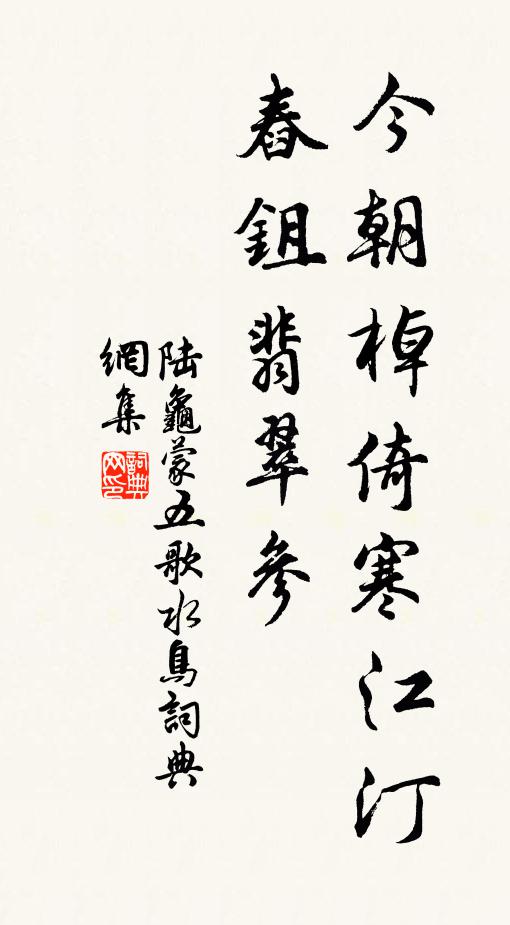 今朝棹倚寒江汀
舂鉏翡翠參
陸龜蒙五歌水鳥詞典
網集
詞典
网印